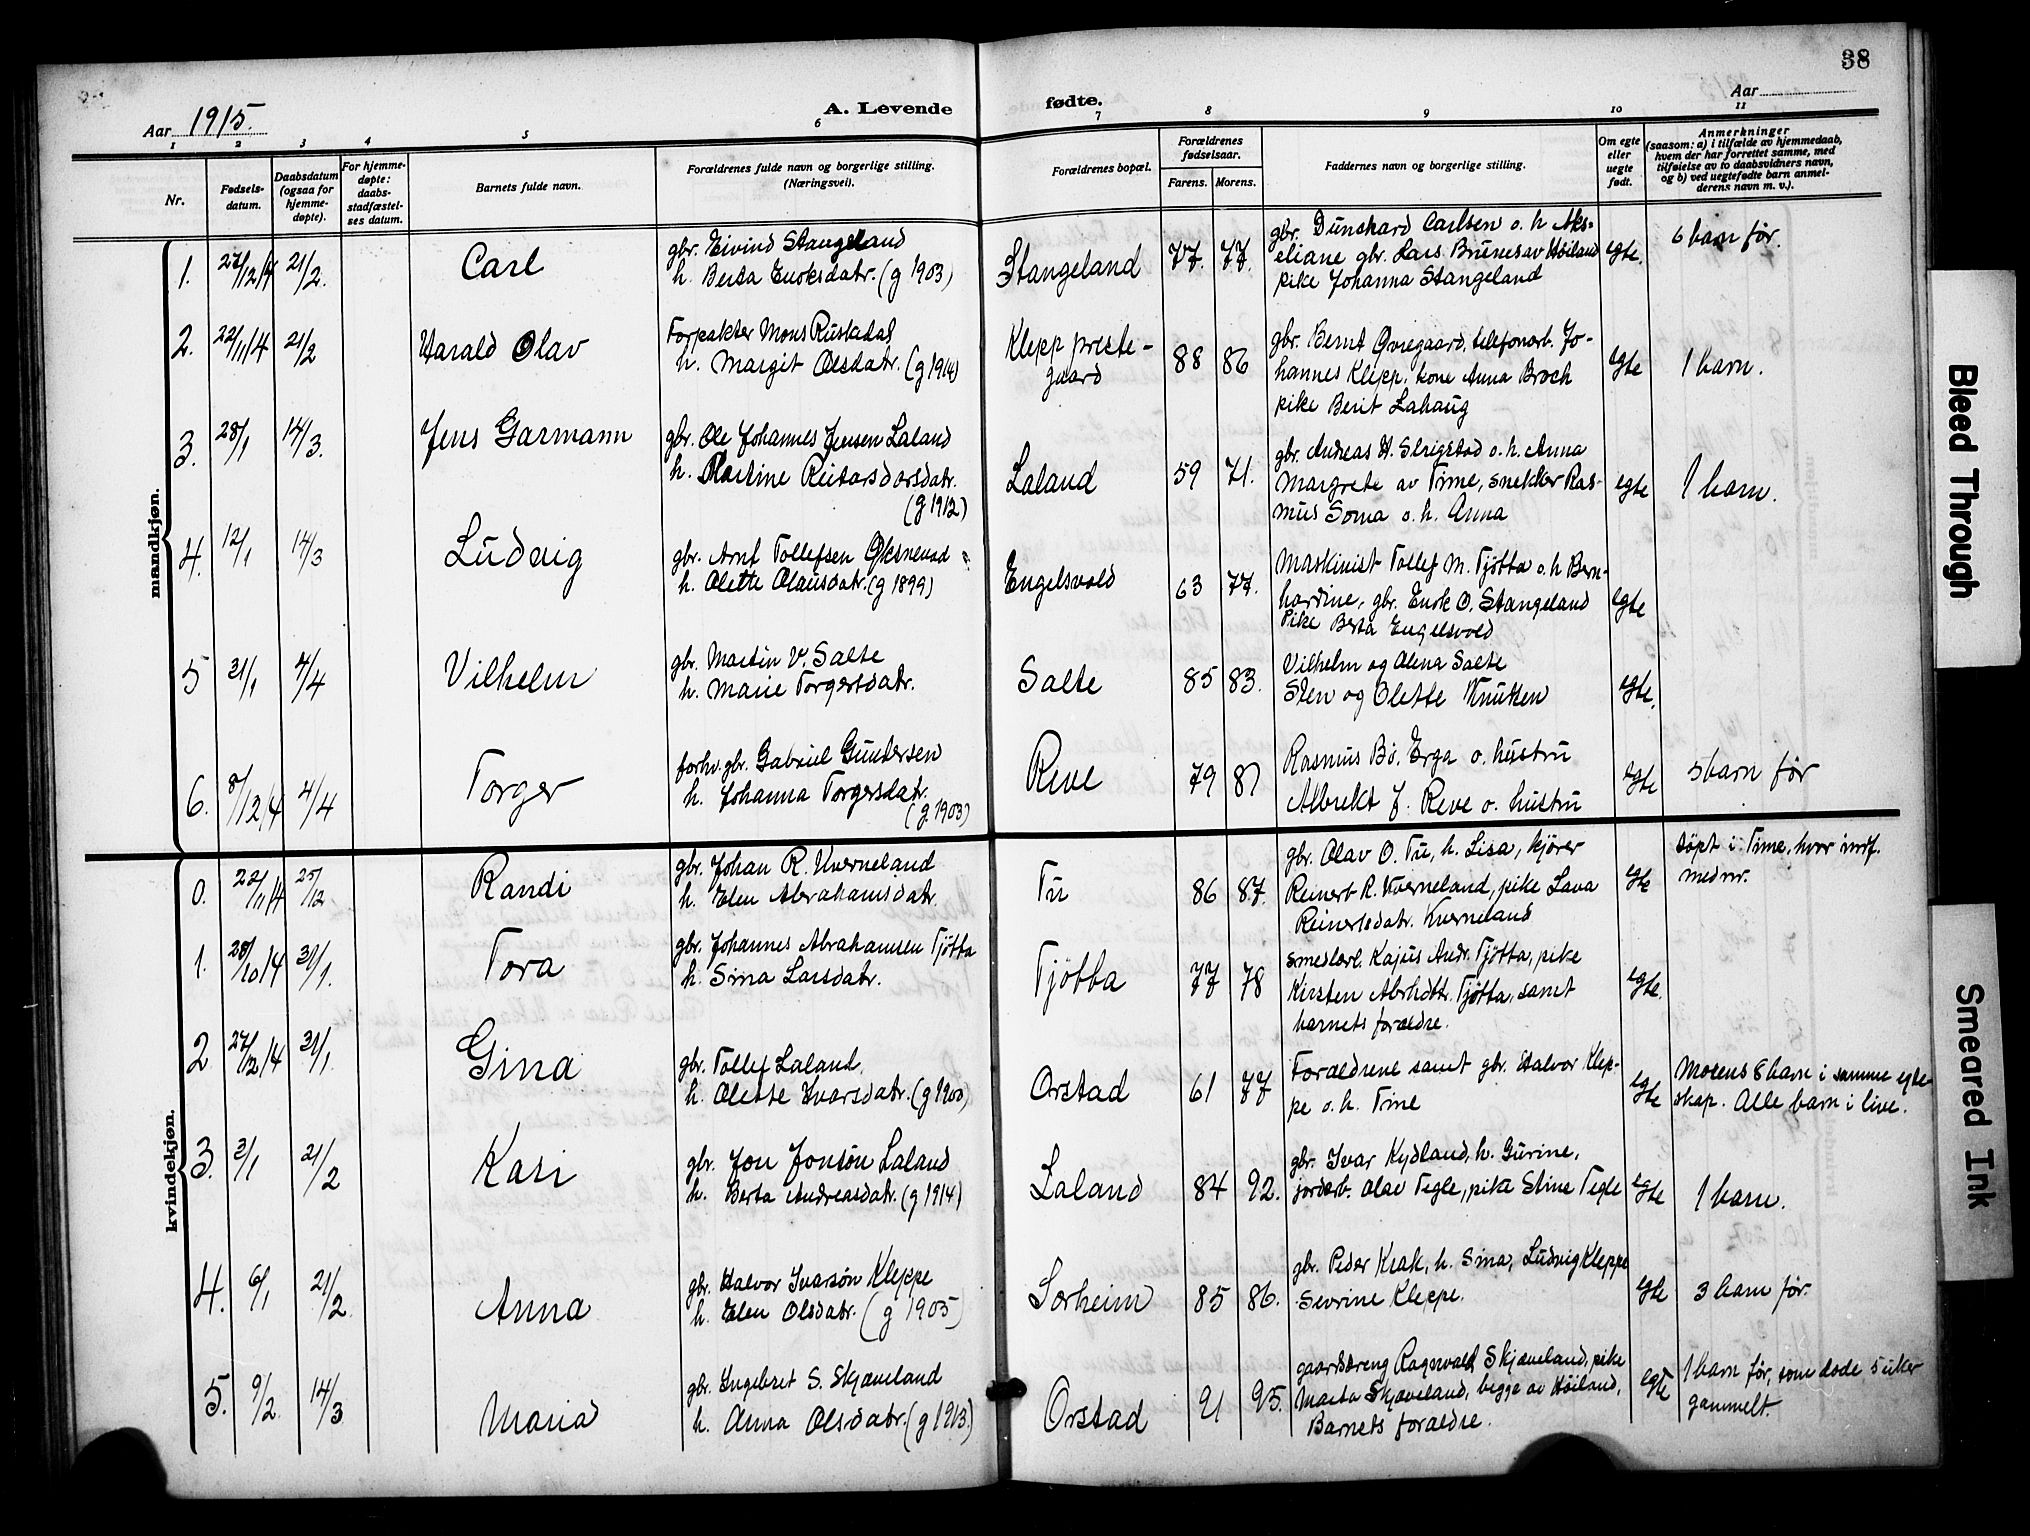 38
Aar 1915.
A. Levende fødte.
Aar
1 2 3 4 5 6 7 8 9 10 11
Nr.
Fødsels-
datum.
Daabsdatum
(ogsaa for
hjemme-
døpte).
For hjemme-
døpte:
daabs-
stadfæstel-
ses datum.
Barnets fulde navn.
Forældrenes fulde navn og borgerlige stilling.
(Næringsvei).
Forældrenes bopæl.
Forældrenes
fødselsaar.
Farens. Morens.
Faddernes navn og borgerlige stilling.
Om egte
eller
uegte
født.
Anmerkninger
(saasom: a) i tilfælde av hjemmedaab,
hvem der har forrettet samme, med
tilføielse av to daabsvidners navn,
og b) ved uegtefødte barn anmel-
derens navn m. v.).
mandkjøn.
1. 27/12 14 21/2. Carl
gbr. Eivind Stangeland
h. Berta Enoksdatr. (g 1903)
Stangeland 77. 77.
gbr. Dunskard Carlsen o. h Aks-
eliane gbr. Lars Brunes av Høiland
pike Johanna Stangeland
egte. 6 barn før.
2. 22/11 14 21/2 Harald Olav
Forpakter Mons Rustdal
h. Margit Olsdatr. (g 1914)
Klepp preste-
gaard 88 86
gbr. Bernt Øvregaard, telefonarb. Jo-
hannes Klepp. kone Anna Broch
pike Berit Lahaug
egte 1 barn.
3. 28/1 14/3. Jens Garmann
gbr. Ole Johannes Jensen Laland
h. Martine Reitarsdorsdatr.
(g 1912)
Laland 59 71.
gbr. Andreas H. Skrigstad o. h. Anna
Margrete av Time, snekker Ras-
mus Soma o. h. Anna
egte 1 barn.
4. 12/1 14/3 Ludvig
gbr. Arnt Tollefsen Øksnevad
h. Olette Olausdatr. (g 1899)
Engelsvold 63 77.
Maskinist Tollef M. Tjøtta o. h Bern-
hardine, gbr. Enok O. Stangeland
Pike Berta Engelsvold
egte
5 31/1 4/4 Vilhelm
gbr. Martin V. Salte
h. Marie Torgersdatr.
Salte 85 83.
Vilhelm og Alena Salte
Sten og Olette Knutsen
egte.
6. 8/12 14 4/4 Torger
forhv. gbr. Gabriel Gundersen
h. Johanna Torgersdatr.
(g. 1903)
Reve 79 81
Rasmus Bø. Erga o. hustru
Albrekt J. Reve o. hustru
egte 5 barn før
kvindekjøn.
0. 22/11 14 25/12 Randi
gbr. Johan R. Kverneland
h. Elen Abrahamsdatr.
Tu 86 87.
gbr. Olav O. Tu, h. Lisa, kjører
Reinert R. Kverneland, pike Lava
Reinertsdatr. Kverneland
egte
døpt i Time, hvor indf.
med nr.
1. 28/10 14 31/1. Tora
gbr. Johannes Abrahamsen Tjøtta
h. Sina Larsdatr.
Tjøtta 77 78
smedlærl. Kajus Andr. Tjøtta, pike
Kirsten Abrhdtr. Tjøtta, samt
barnets foraldre.
egte.
2 27/12 14 31/1. Gina
gbr. Tollef Laland,
h. Olette Ivarsdatr. (g 1900)
Orstad 61 77
Foraldrene samt gbr. Halvor Klep-
pe o. h. Trine
egte
Morens 8 barn i samme egte-
skap. Alle barn i live.
3. 3/1 21/2 Kari
gbr. Jon Jonsøn Laland
h. Berta Andreasdatr. (g 1914)
Laland 84 92.
gbr. Ivar Kydland, h. Gurine,
jordarb. Olav Tegle, pike Stine Tegle
egte 1 barn.
4. 6/1 21/2. Anna
gbr. Halvor Ivarsøn Kleppe
h. Elen Olsdatr. (g 1905)
Sørheim 85 86.
gbr. Peder Krak, h. Sina, Ludvig Kleppe
Sevrine Kleppe.
egte 3 barn før.
5. 9/2. 14/3 Maria
gbr. Ingebret S. Skjæveland
h. Anna Olsdatr. (g 1913.)
Orstad 91 95.
gaardsdreng Ragnvald Skjæveland, pike
Marta Skjæveland, begge av Høiland,
Barnets foraldre.
egte
1 barn før, som døde 5 uker
gammelt.
Bleed Through
Smeared Ink